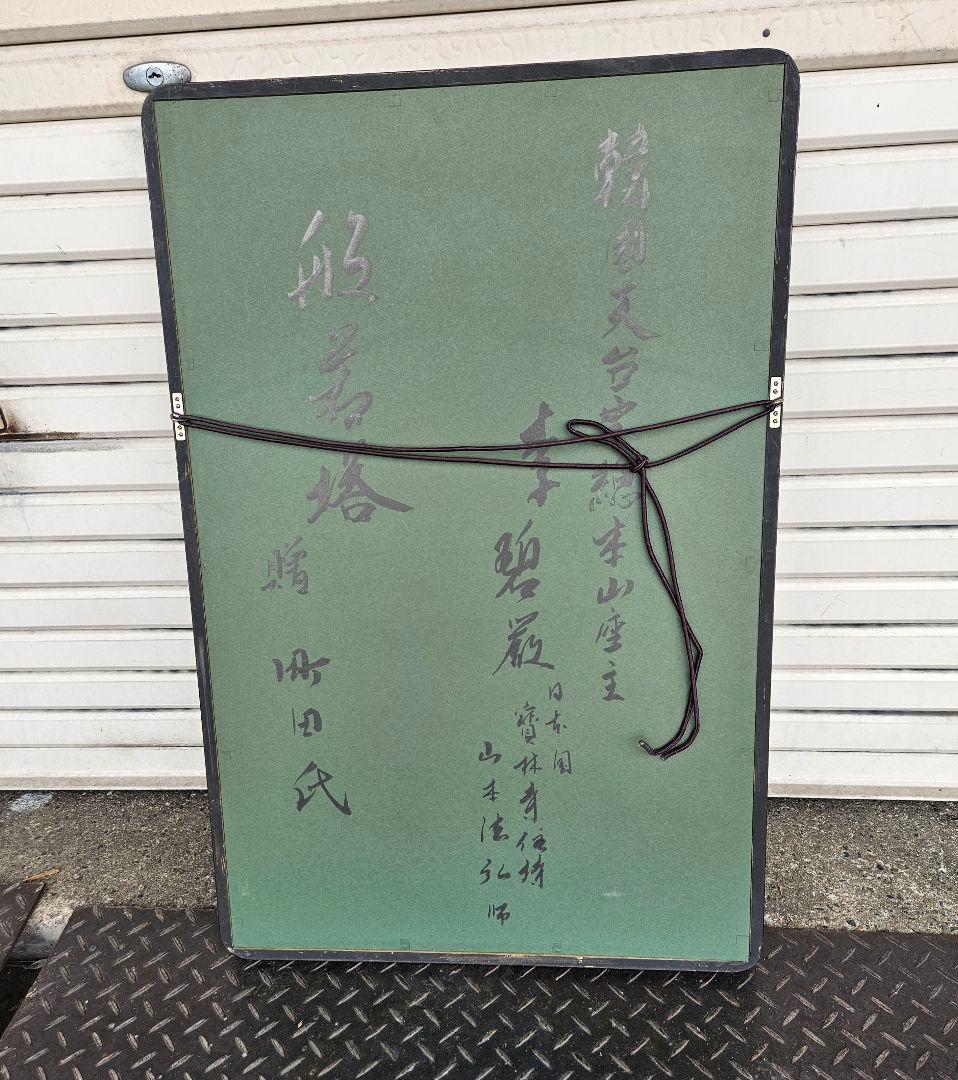 韓國天台宗總本山座主
李碧巌
日本國
寶林寺住持
山本法弘師
般若塔
贈 町田氏